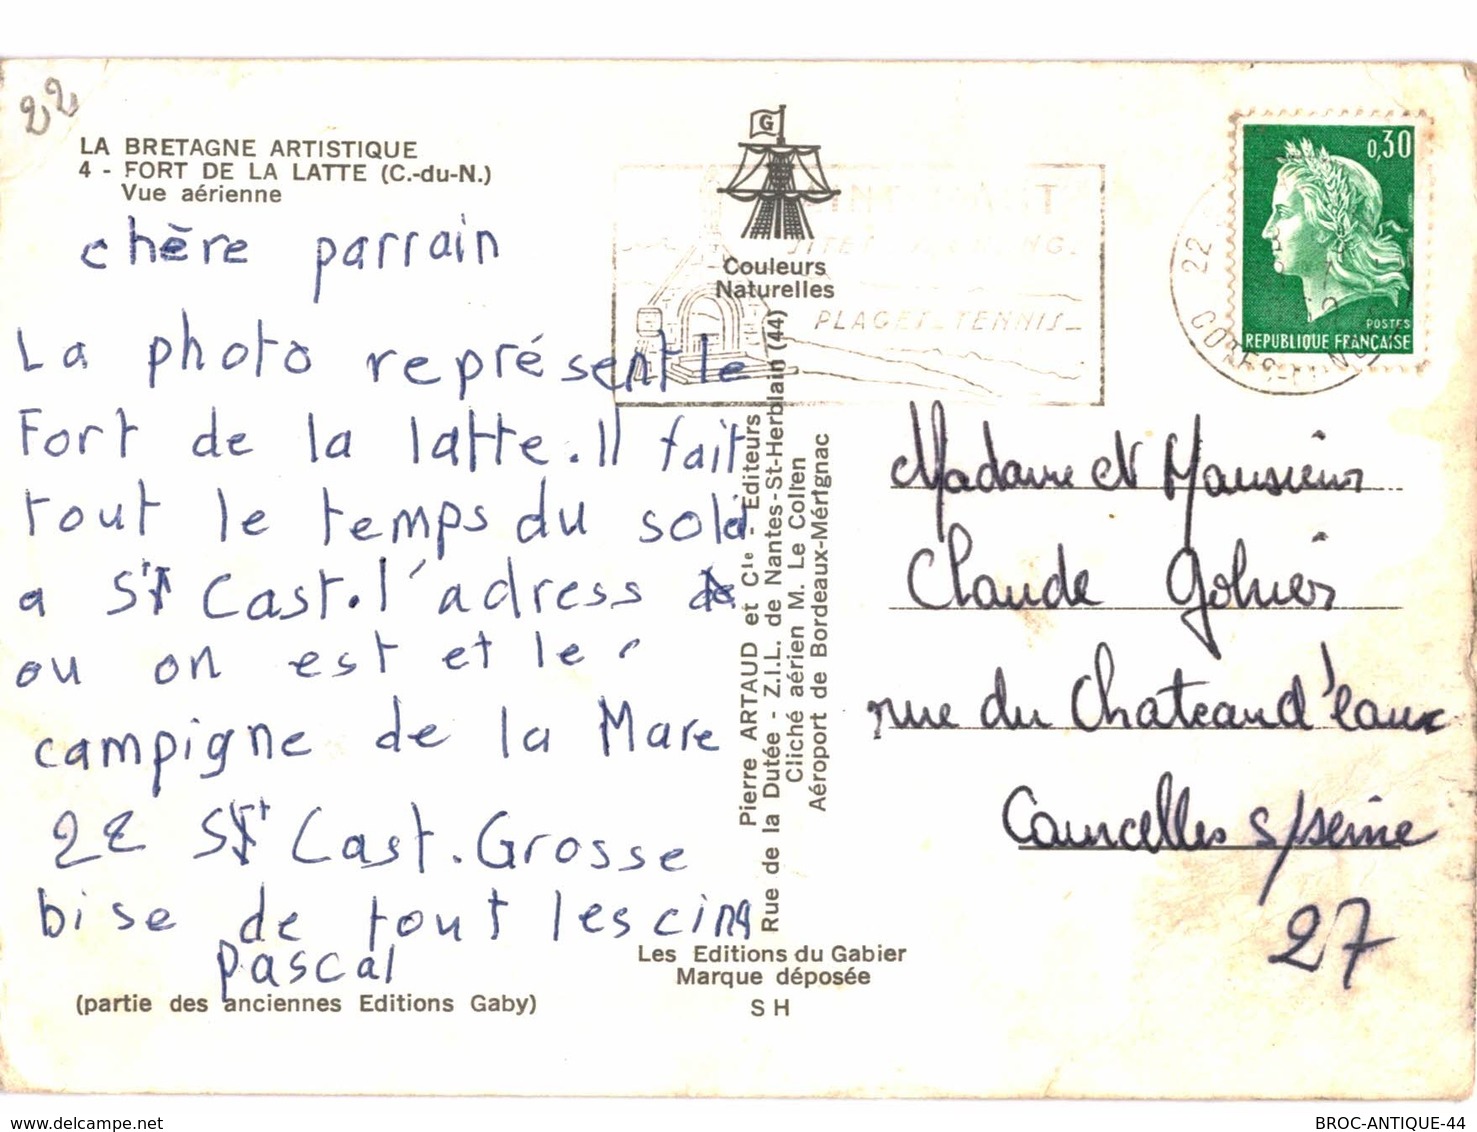 22
LA BRETAGNE ARTISTIQUE
4 - FORT DE LA LATTE (C.-du-N.)
Vue aérienne
chère parrain
La photo représent le
Fort de la latte. Il fait
tout le temps du solei
a St Cast. l'adress de
ou on est et le
campigne de la Mare
22 St Cast. Grosse
bise de tout les cinq
pascal
(partie des anciennes Editions Gaby)
G
Couleurs
Naturelles
PLAGES_TENNIS_
Pierre ARTAUD et Cie - Editeurs
Rue de la Dutée - Z.I.L. de Nantes-St-Herblain (44)
Cliché aérien M. Le Collen
Aéroport de Bordeaux-Mérignac
Les Editions du Gabier
Marque déposée
S H
0,30
POSTES
REPUBLIQUE FRANÇAISE
22
COTES-DU-NORD
Madame et Monsieur
Claude Gohier
rue du Chateau d'eaux
Courcelles s/seine
27
BROC-ANTIQUE-44
delcampe.net